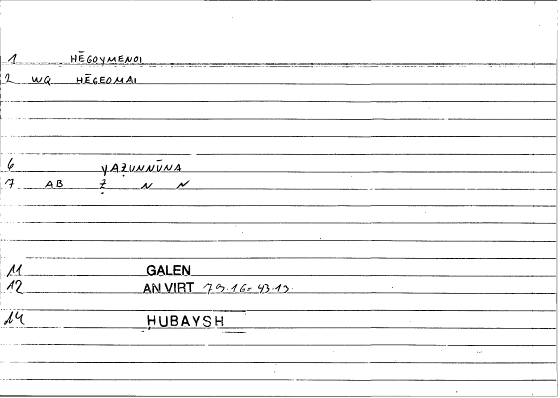 1 HĒGOYMENOI
2 WQ HĒGEOMAI
6 YAẒUNNŪNA
7 AB Ẓ N N
11 GALEN
12 AN VIRT
14 ḤUBAYSH